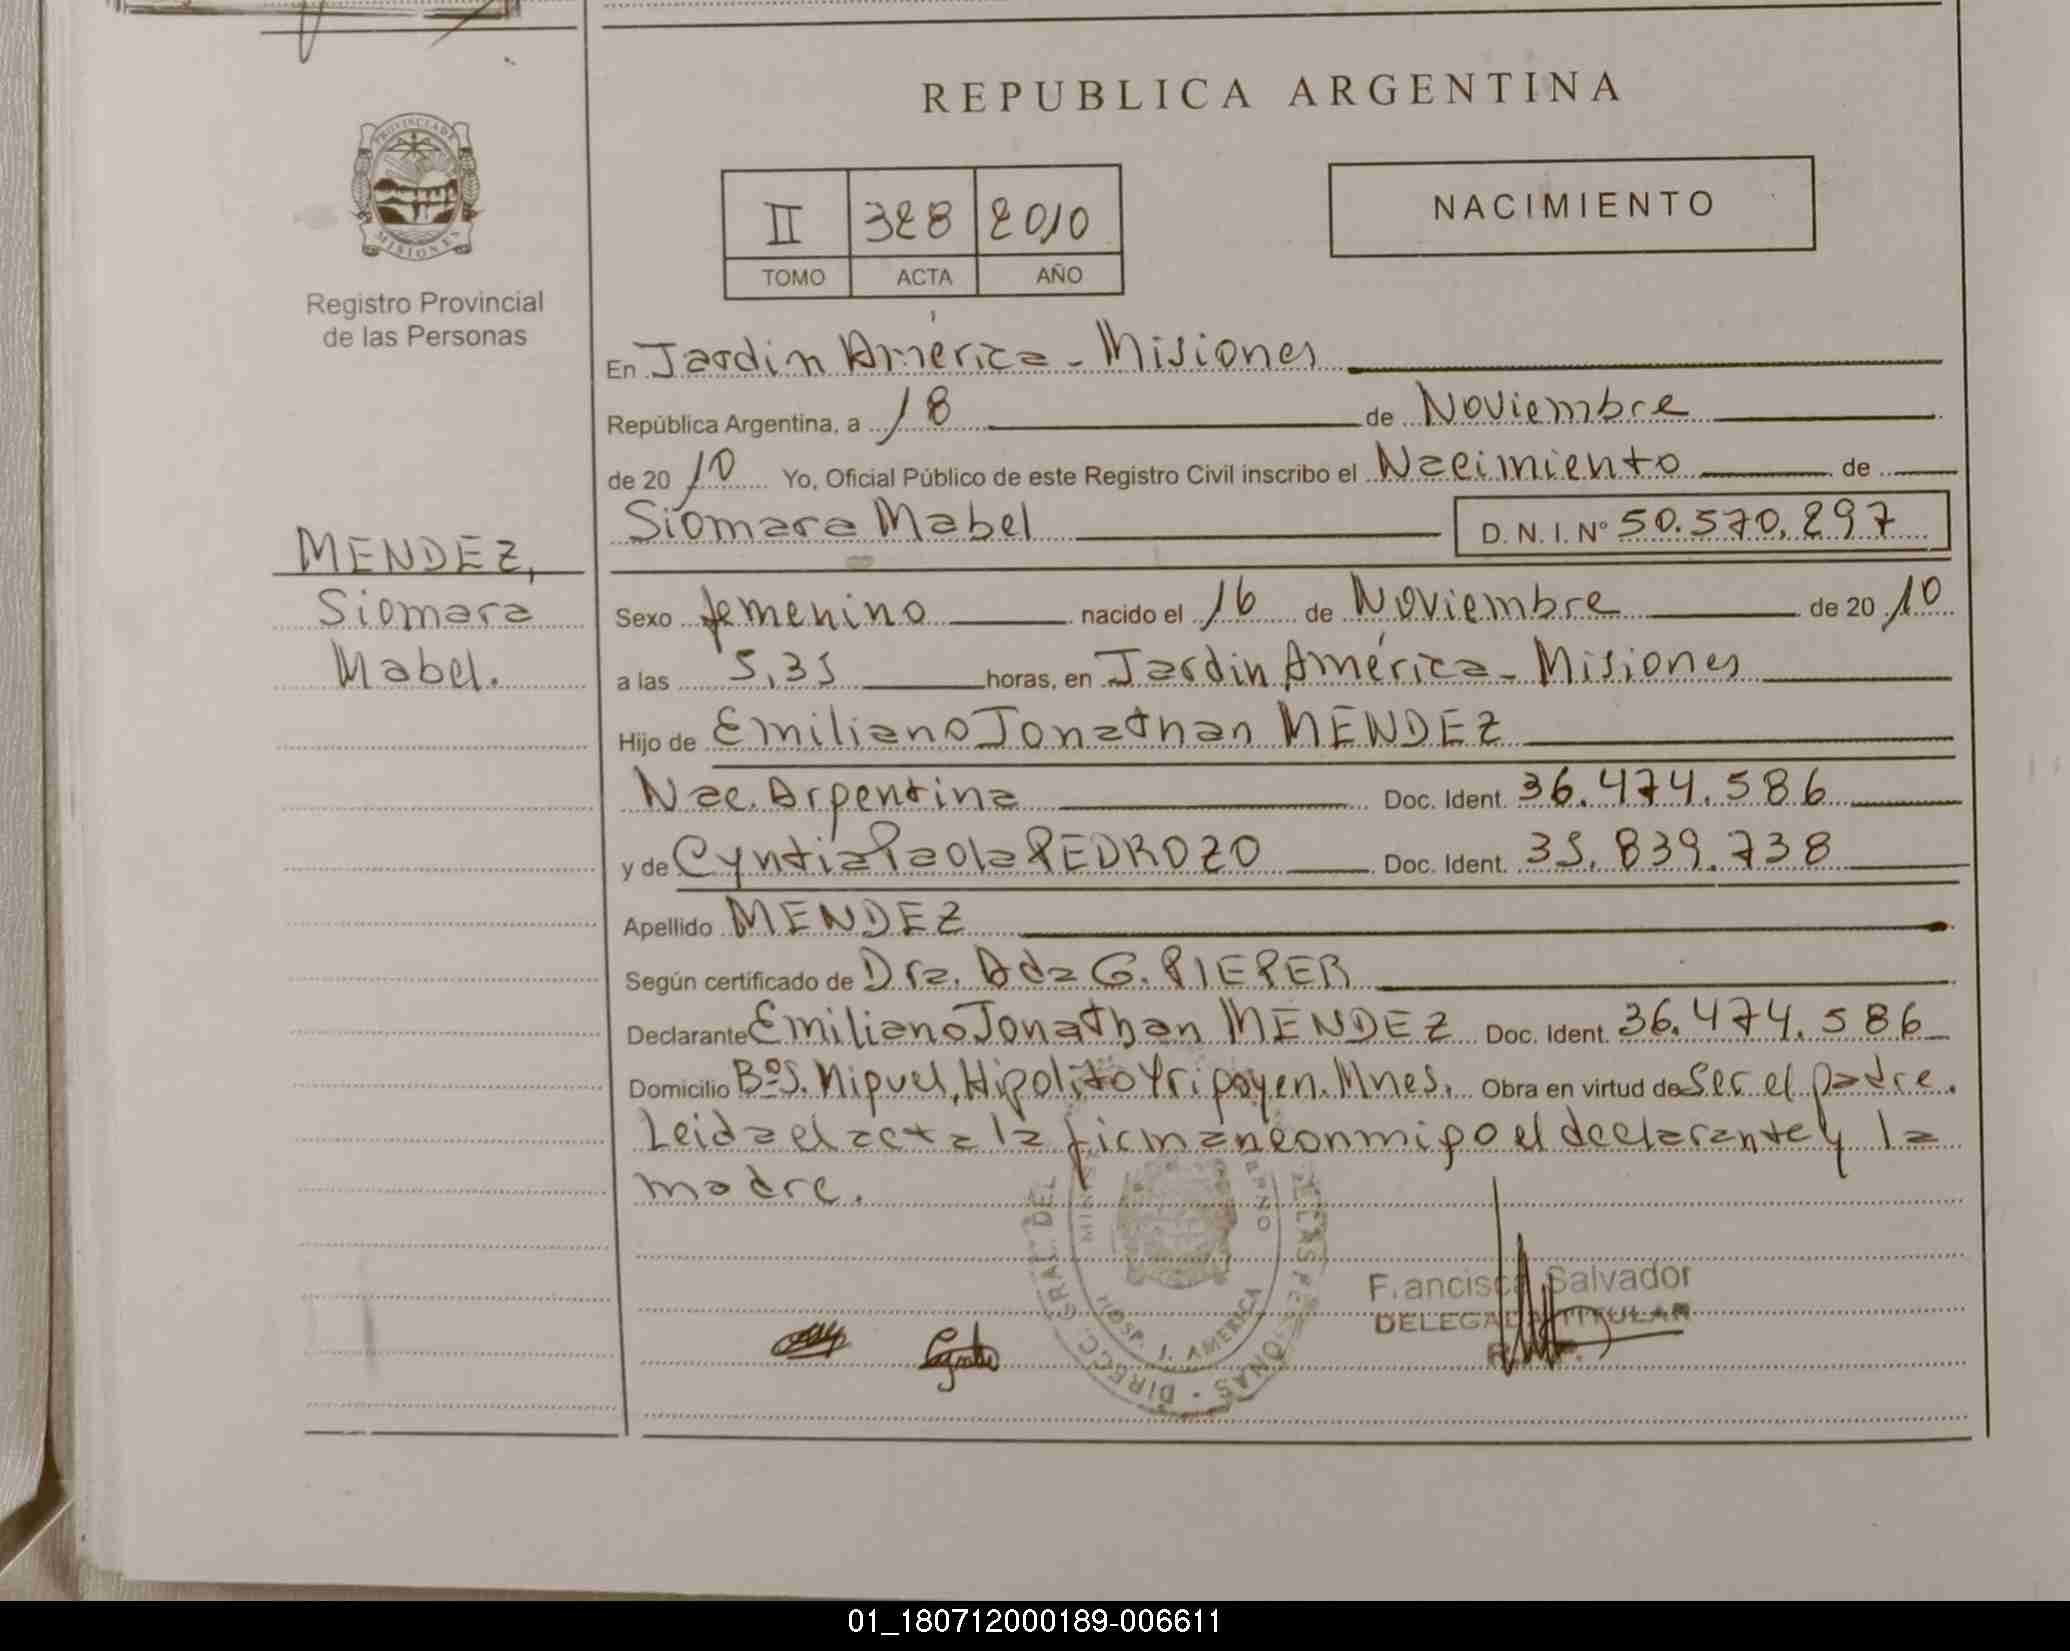 REPUBLICA ARGENTINA
PROVINCIA DE
MISIONES
Registro Provincial
de las Personas
II 328 2010
TOMO ACTA AÑO
NACIMIENTO
MENDEZ,
Siomara
Mabel.
En Jardin América - Misiones
República Argentina, a 18 de Noviembre
de 2010 Yo, Oficial Público de este Registro Civil inscribo el Nacimiento de
Siomara Mabel D. N. I. Nº 50.570.297
Sexo femenino nacido el 16 de Noviembre de 2010
a las 5,35 horas, en Jardin América - Misiones
Hijo de Emiliano Jonathan MENDEZ
Nac. Argentina Doc. Ident. 36.474.586
y de Cyntia Paola PEDROZO Doc. Ident. 35.839.738
Apellido MENDEZ
Según certificado de Dra. Ada G. PIEPER
Declarante Emiliano Jonathan MENDEZ Doc. Ident. 36.474.586
Domicilio Bº S. Miguel, Hipolito Yrigoyen. Mnes. Obra en virtud de ser el padre.
Leida el acta la firman conmigo el declarante y la
madre.
DIRECC. GRAL. DEL PERSONAS
HOSP. J. AMERICA
Francisca Salvador
DELEGADA TITULAR
01_180712000189-006611